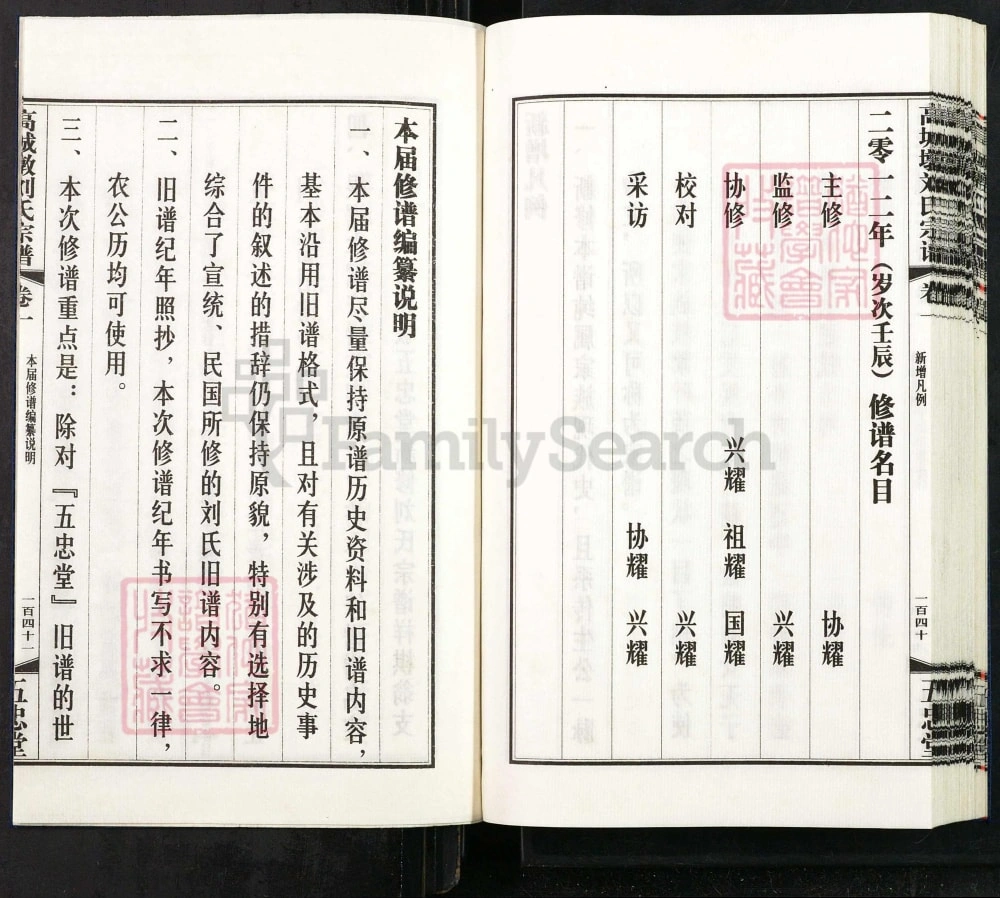 二零一二年（岁次壬辰）修谱名目
主修 协耀
监修 兴耀
协修 兴耀 祖耀 国耀
校对 兴耀
采访 协耀 兴耀
新增凡例
一百四十
五忠堂
本届修谱编纂说明
一、本届修谱尽量保持原谱历史资料和旧谱内容，
基本沿用旧谱格式，且对有关涉及的历史事
件的叙述的措辞仍保持原貌，特别有选择地
综合了宣统、民国所修的刘氏旧谱内容。
二、旧谱纪年照抄，本次修谱纪年书写不求一律，
农公历均可使用。
三、本次修谱重点是：除对『五忠堂』旧谱的世
高城墩刘氏宗谱
卷一
本届修谱编纂说明
一百四十一
五忠堂
FamilySearch